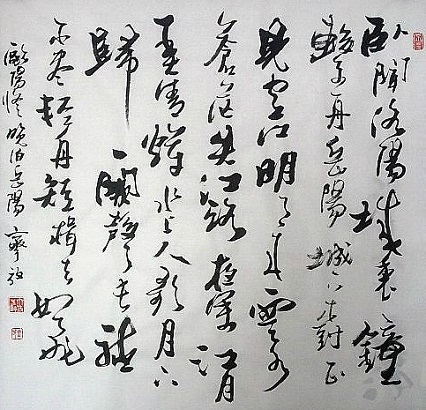 卧闻洛陽城裏鐘
繫舟岳陽城下樹正
見空江明月来雲水
蒼茫失江路夜深江月
弄清輝水上人歌月下
歸一闋聲長聽
不尽輕舟短楫去如飛
歐陽修晚泊岳陽